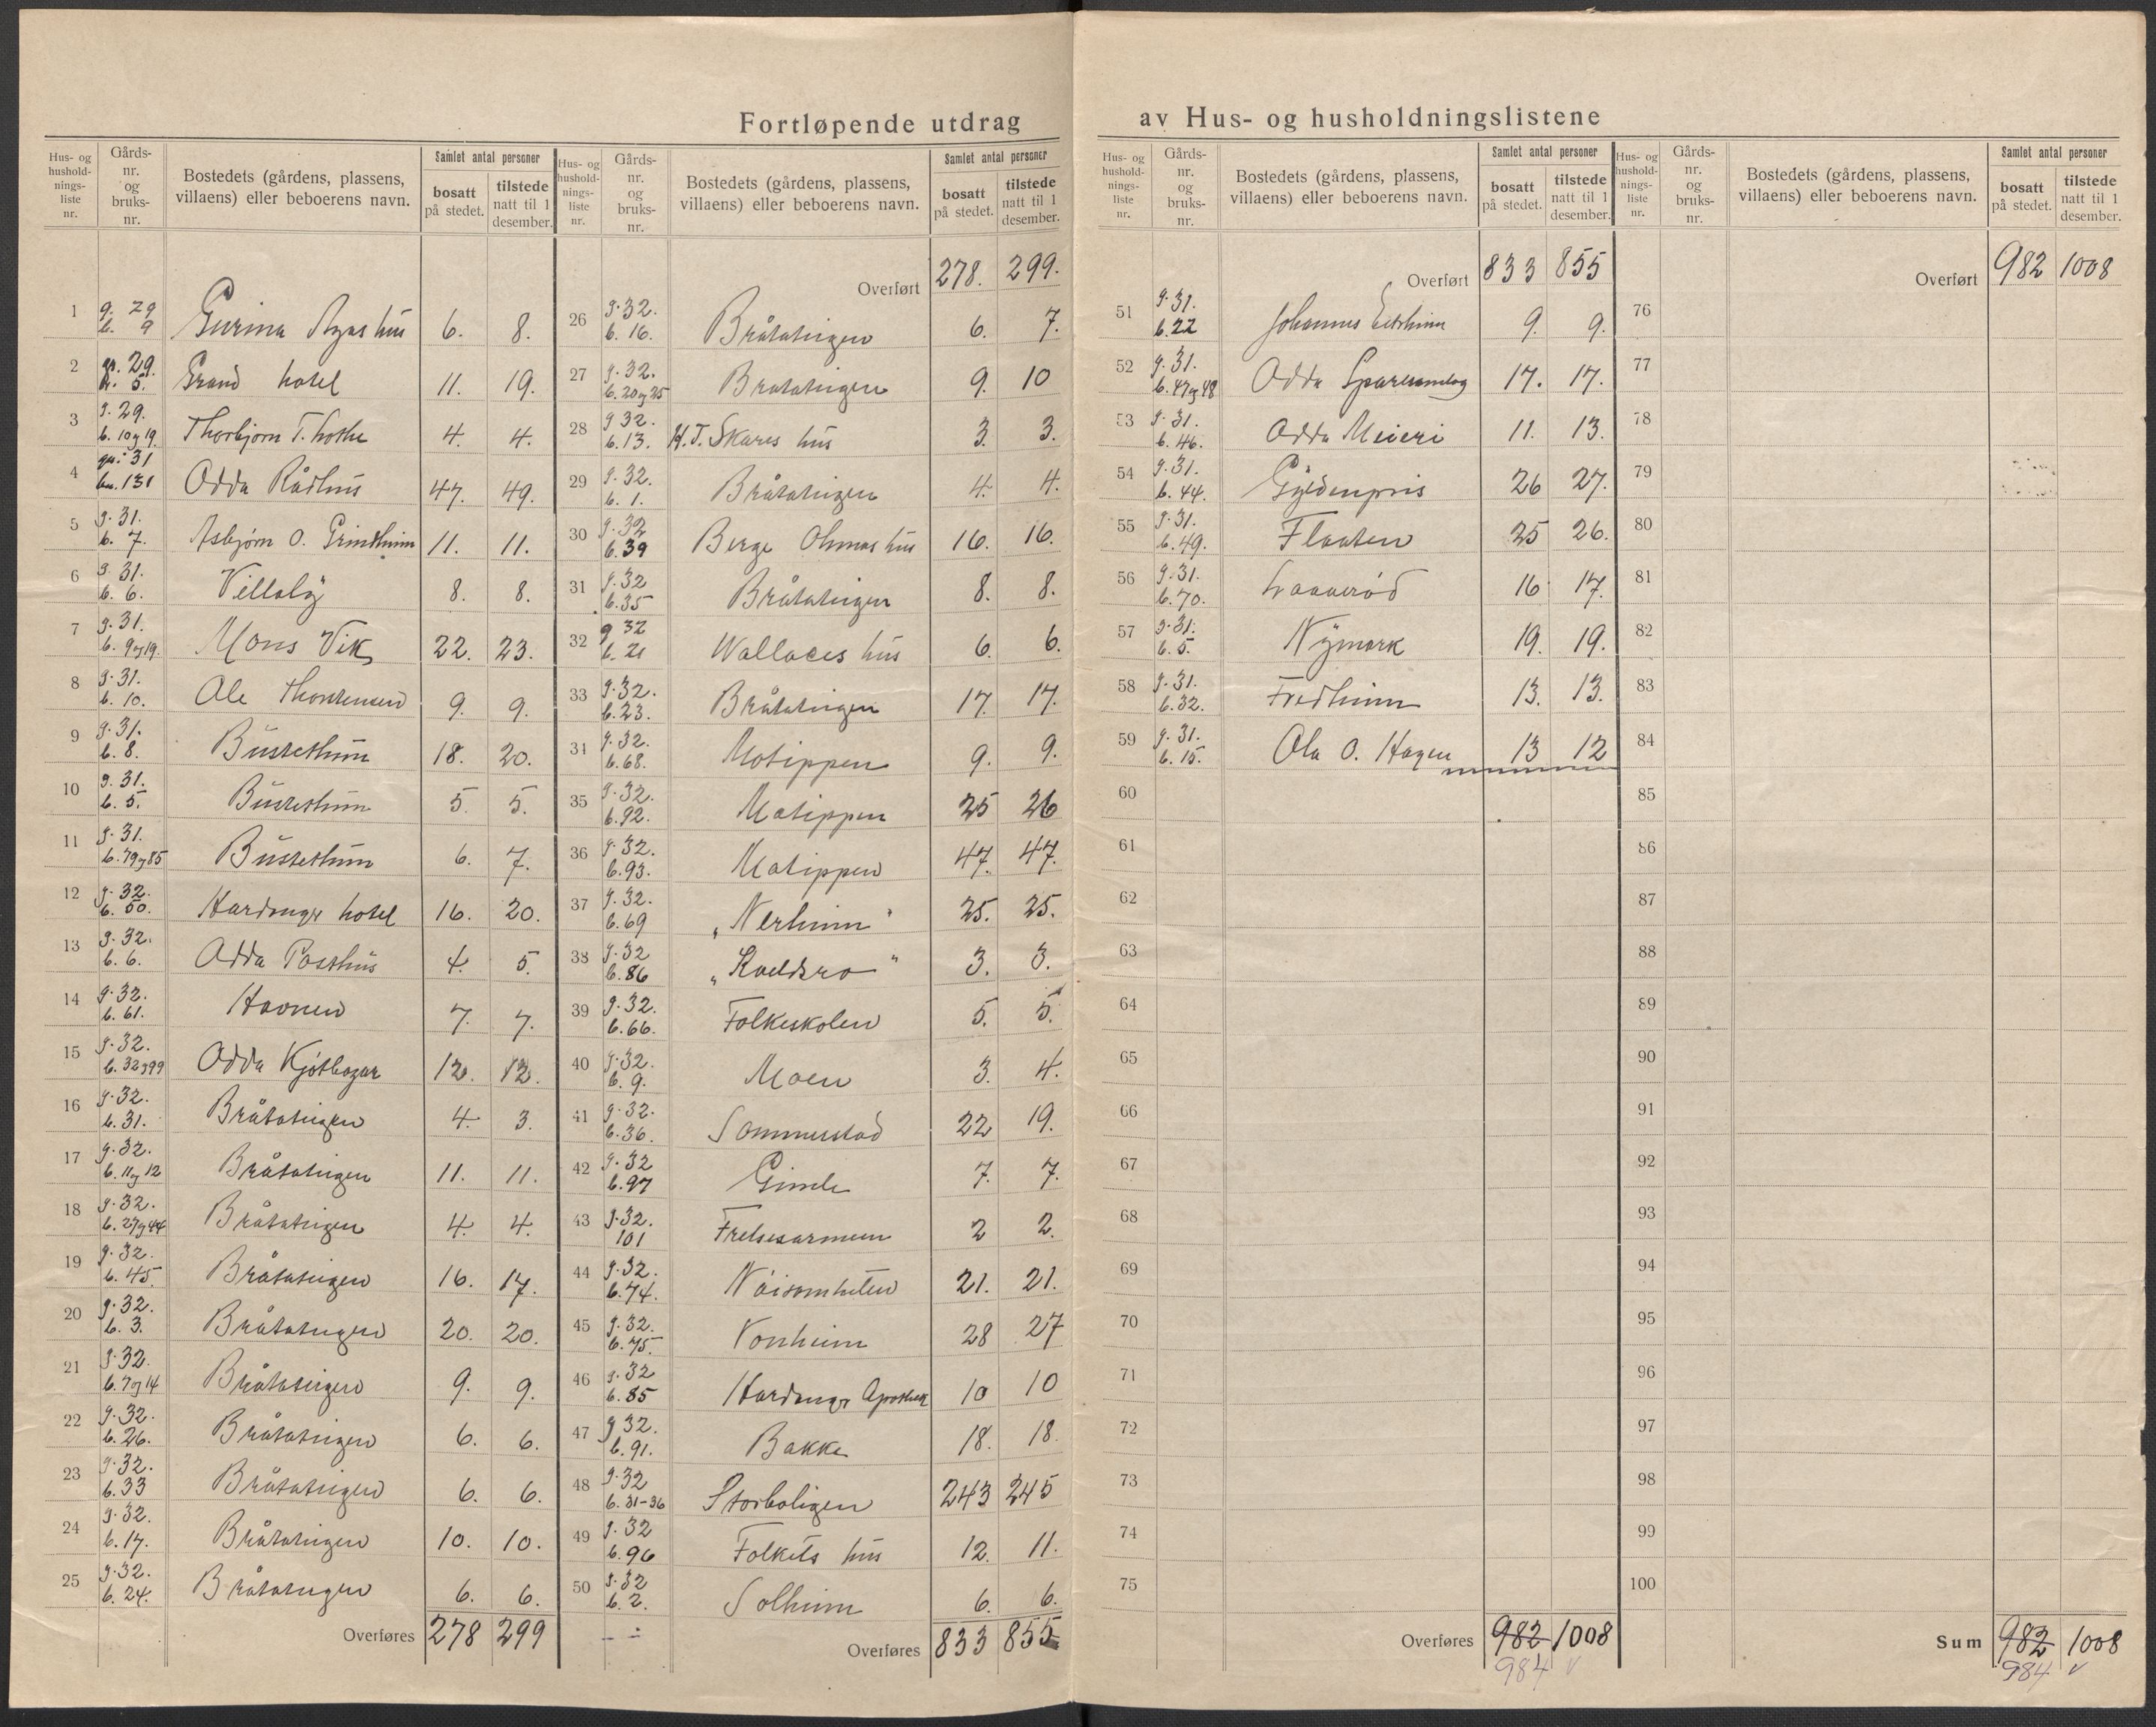 Fortløpende utdrag av Hus- og husholdningslistene
Hus- og hushold-nings-liste nr. | Gårds-nr. og bruks-nr. | Bostedets (gårdens, plassens, villaens) eller beboerens navn. | Samlet antal personer | bosatt på stedet. | tilstede natt til 1 desember.
1 g. 29 b. 9 hus 6. 8.
2 gr. 29. br. 5. Grand hotel 11. 19.
3 g. 29. b. 10 og 19. Thorbjørn T. 4. 4.
4 gn. 31 bn. 131 Odda Rådhus 47. 49.
5 g. 31. b. 7. Asbjørn O. Grindheim 11. 11.
6 g. 31. b. 6. Villaly 8. 8.
7 g. 31. b. 9 og 19. Mons Vik 22. 23.
8 g. 31. b. 10. Ole 9. 9.
9 g. 31. b. 8. Bustetun 18. 20.
10 g. 31. b. 5. Bustetun 5. 5.
11 g. 31. b. 79 og 85 Bustetun 6. 7.
12 g. 32. b. 50. Hardanger hotel 16. 20.
13 g. 32. b. 6. Odda Posthus 4. 5.
14 g. 32. b. 61. 7. 7.
15 g. 32. b. 32 og 99 Odda Kjøtbazar 12. 12.
16 g. 32. b. 31. Bråtateigen 4. 3.
17 g. 32. b. 11 og 12 Bråtateigen 11. 11.
18 g. 32. b. 27 og 44 Bråtateigen 4. 4.
19 g. 32. b. 45. Bråtateigen 16. 17.
20 g. 32. b. 3. Bråtateigen 20. 20.
21 g. 32. b. 7 og 14 Bråtateigen 9. 9.
22 g. 32. b. 26. Bråtateigen 6. 6.
23 g. 32. b. 33 Bråtateigen 6. 6.
24 g. 32. b. 17. Bråtateigen 10. 10.
25 g. 32. b. 24. Bråtateigen 6. 6.
Overføres 278 299
Hus- og hushold-nings-liste nr. | Gårds-nr. og bruks-nr. | Bostedets (gårdens, plassens, villaens) eller beboerens navn. | Samlet antal personer | bosatt på stedet. | tilstede natt til 1 desember.
Overført 278. 299.
26 g. 32. b. 16. Bråtateigen 6. 7.
27 g. 32. b. 20 og 25 Bråtateigen 9. 10
28 g 32. b. 13. H. T. Skares hus 3. 3.
29 g. 32. b. 1. Bråtateigen 4. 4.
30 g. 32 b. 39 Berge hus 16. 16.
31 g. 32 b. 35 Bråtateigen 8. 8.
32 g 32 b. 21 Wallaces hus 6. 6.
33 g. 32. b. 23. Bråtateigen 17. 17.
34 g. 32. b. 68. Motippen 9. 9.
35 g. 32. b. 92. Motippen 25 26
36 g. 32. b. 93. Motippen 47. 47.
37 g. 32. b. 69 „Nerheim" 25. 25.
38 g. 32 b. 86 „Kveldsro" 3. 3.
39 g. 32. b. 66. Folkeskolen 5. 5.
40 g. 32. b. 9. Moen 3. 4.
41 g. 32. b. 36. Sommerstad 22 19.
42 g. 32 b. 97 Gimle 7. 7.
43 g. 32. 101 Frelsesarmeen 2 2.
44 g. 32. b. 74. Nøisomheten 21. 21.
45 g. 32. b. 75. Vonheim 28 27
46 g. 32 b. 85 Hardanger Apothek 10 10
47 g 32. b. 91. Bakke 18. 18.
48 g. 32 b. 31-36 Storboligen 243 245
49 g. 32 b. 96 Folkets hus 12. 11.
50 g. 32 b. 2. Solheim 6. 6.
Overføres 833 855
Hus- og hushold-nings-liste nr. | Gårds-nr. og bruks-nr. | Bostedets (gårdens, plassens, villaens) eller beboerens navn. | Samlet antal personer | bosatt på stedet. | tilstede natt til 1 desember.
Overført 833 855
51 g. 31. b. 22 Johannes Eitrheim 9. 9.
52 g. 31. b. 47 og 48 Odda 17. 17.
53 g. 31. b. 46. Odda Meieri 11. 13.
54 g. 31. b. 44. Gyldenpris 26 27.
55 g. 31. b. 49. Flaaten 25 26.
56 g. 31. b. 70. 16 17.
57 g. 31. b. 5. Nymark 19. 19.
58 g. 31. b. 32. Fredheim 13. 13.
59 g. 31. b. 15. Ola O. Hagen 13 12
60
61
62
63
64
65
66
67
68
69
70
71
72
73
74
75
Overføres 982 1008
984 v
Hus- og hushold-nings-liste nr. | Gårds-nr. og bruks-nr. | Bostedets (gårdens, plassens, villaens) eller beboerens navn. | Samlet antal personer | bosatt på stedet. | tilstede natt til 1 desember.
Overført 982 1008
76
77
78
79
80
81
82
83
84
85
86
87
88
89
90
91
92
93
94
95
96
97
98
99
100
Sum 982 1008
984 v